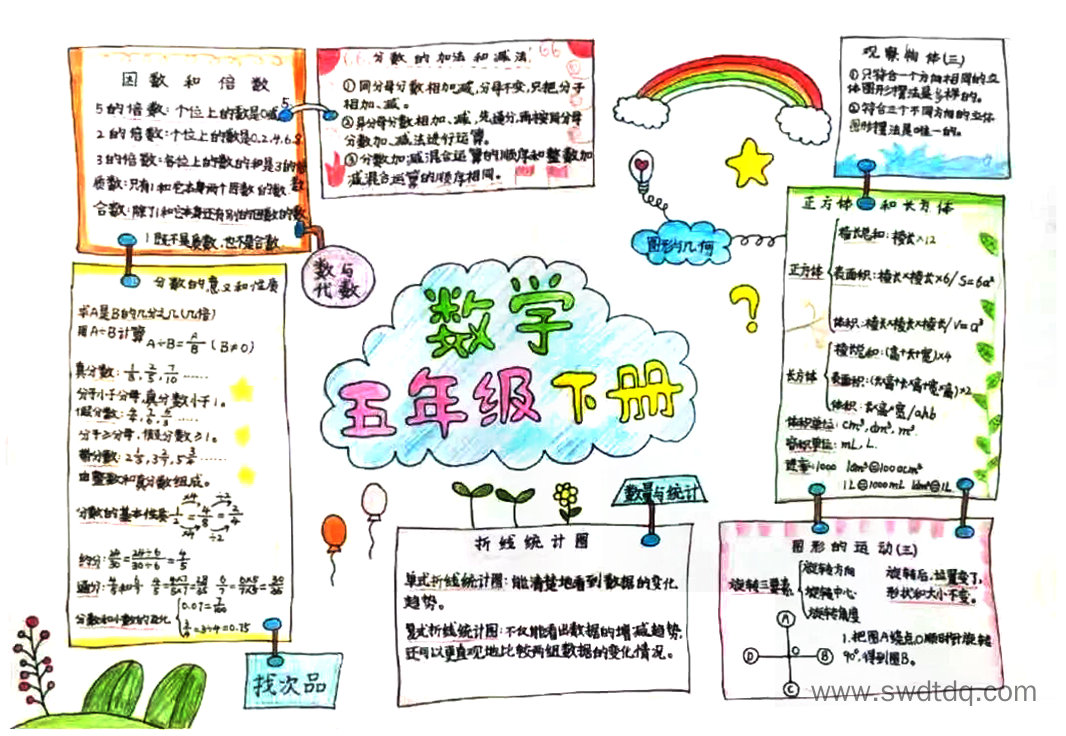 因数和倍数
5的倍数:个位上的数是0或5
2的倍数:个位上的数是0.2.4.6.8
3的倍数:各位上的数的和是3的倍数
质数:只有1和它本身两个因数的数
合数:除了1和它本身还有别的因数的数
1既不是质数,也不是合数
分数的加法和减法
①同分母分数相加减,分母不变,只把分子
相加、减。
②异分母分数相加、减,先通分,再按同分母
分数加、减法进行运算。
③分数加减混合运算的顺序和整数加
减混合运算的顺序相同。
观察物体(三)
①只符合一个方向相同的立
体图形摆法是多样的。
②符合三个不同方向的立体
图形摆法是唯一的。
数与
代数
图形与几何
分数的意义和性质
求A是B的几分之几(几倍)
用A÷B计算
A÷B=A/B (B≠0)
真分数:1/8, 2/5, 7/10 ……
分子小于分母,真分数小于1。
假分数:
分子≥分母,假分数≥1。
带分数:
由整数和真分数组成。
分数的基本性质 1/2=4/8=2/4
×4 ÷2
×4 ÷2
约分:24/30=24÷6/30÷6=4/5
通分:
分数和小数的互化
3/4=3÷4=0.75
找次品
数学
五年级下册
正方体和长方体
正方体
棱长总和:棱长×12
表面积:棱长×棱长×6/S=6a²
体积:棱长×棱长×棱长/V=a³
长方体
棱长总和:(高+长+宽)×4
表面积:
体积:长×高×宽/abh
体积单位:cm³,dm³,m³
容积单位:mL,L.
进率:1000 1dm³=1000cm³
1L=1000mL 1dm³=1L
数量与统计
折线统计图
单式折线统计图:能清楚地看到数据的变化
趋势。
复式折线统计图:不仅能看出数据的增减趋势,
还可以更直观地比较两组数据的变化情况。
图形的运动(三)
旋转三要素
旋转方向
旋转中心
旋转角度
旋转后,位置变了,
形状和大小不变。
A
D
O
B
C
1.把图A绕点O顺时针旋转
90°,得到图B。
www.swdtdq.com